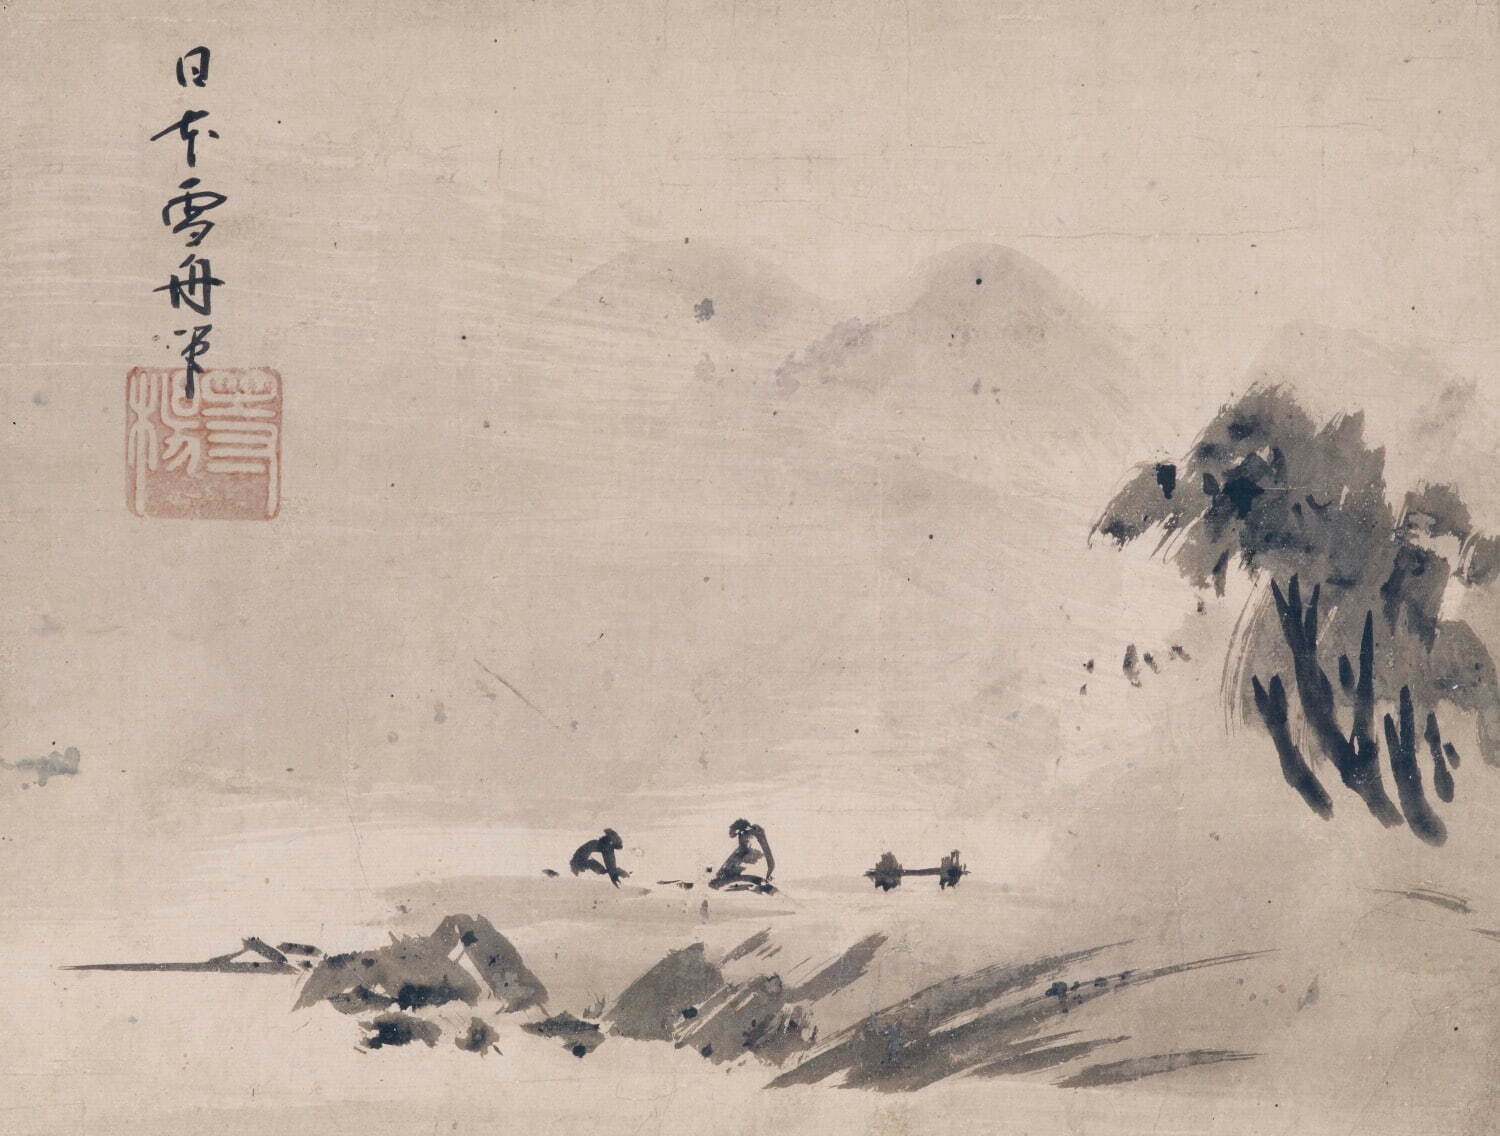 日本雪舟筆
等楊